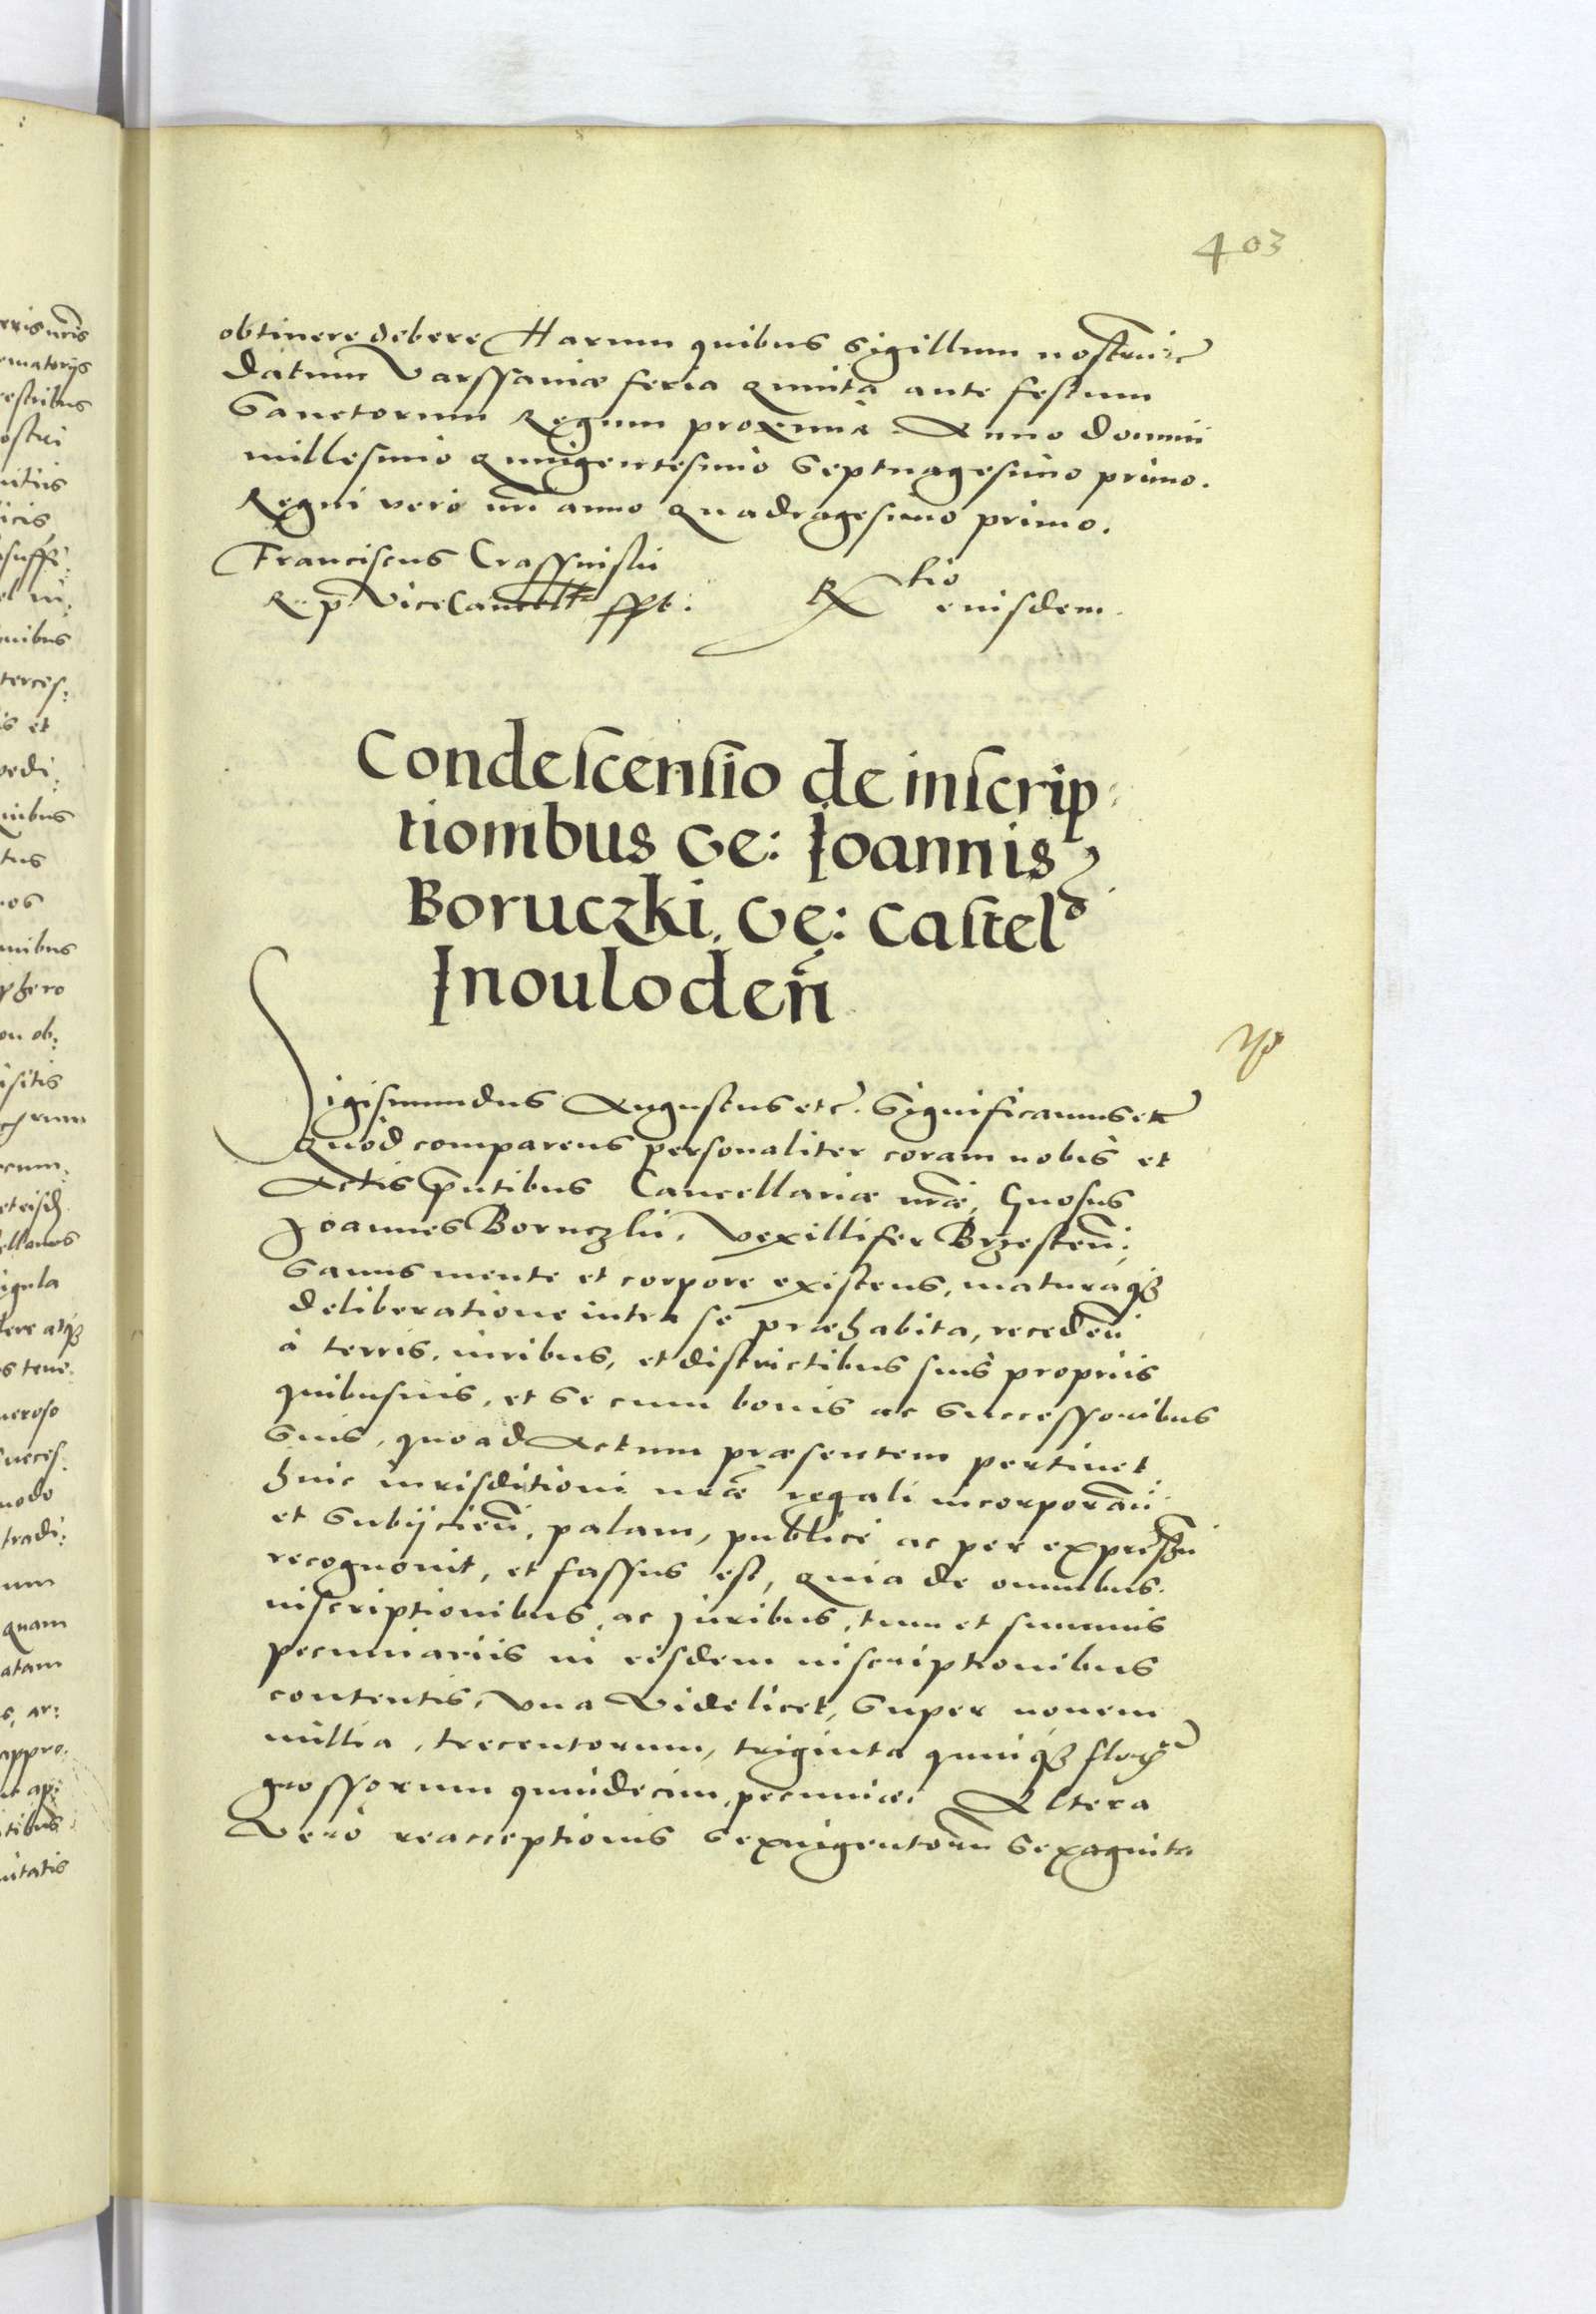 403
obtinere debere Harum quibus sigillum nostrum etc
datum Varssaviæ feria quinta ante festum
Sanctorum Regum proxima. Anno domini
millesimo quingentesimo Septuagesimo primo.
Regni vero nri anno quadragesimo primo.
Franciscus Crassinski
R. p. ViceCancell. sspt:
Rtio eiusdem.
Condescensio de inscrip:
tionibus Ge: Ioannis
Boruczki, Ge: Castel
Inouloden
Sigismundus Augustus etc. Significamus etc
Quod comparens personaliter coram nobis et
Actis pntibus Cancellariæ nræ, Gnosus
Joannes Boruczki, Vexillifer Brzesten:
Sanus mente et corpore existens, maturaque
deliberatione intra se præhabita, receden
à terris, iuribus, et districtibus suis propriis
quibusuis, et se cum bonis ac Successoribus
Suis, quo ad Actum præsentem pertinet
huic iurisditioni nræ regali incorporan
et Subijcien, palam, publice ac per expressum
recognouit, et fassus est, quia de omnibus
inscriptionibus, ac juribus, tum et summis
pecuniariis in eisdem inscriptionibus
contentis, Vna Videlicet, Super nouem
millia, trecentorum, triginta quinque flor
grossorum quindecim, pecuniæ. Altera
Vero reacceptionis sexingentorum Sexaginta
rris nris
ostri
icis
nibus
is et
tus
nibus
on ob:
isitis
igula
s tene:
neroso
succes:
modo
tradi:
quam
appro: